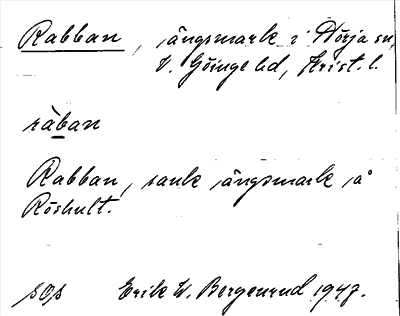 Rabban, ängsmark i Hörja sn,
V. Göinge hd, Krist. l.
ràban
Rabban, sank ängsmark på
Röshult.
sqs Erik W. Bergenrud 1947.